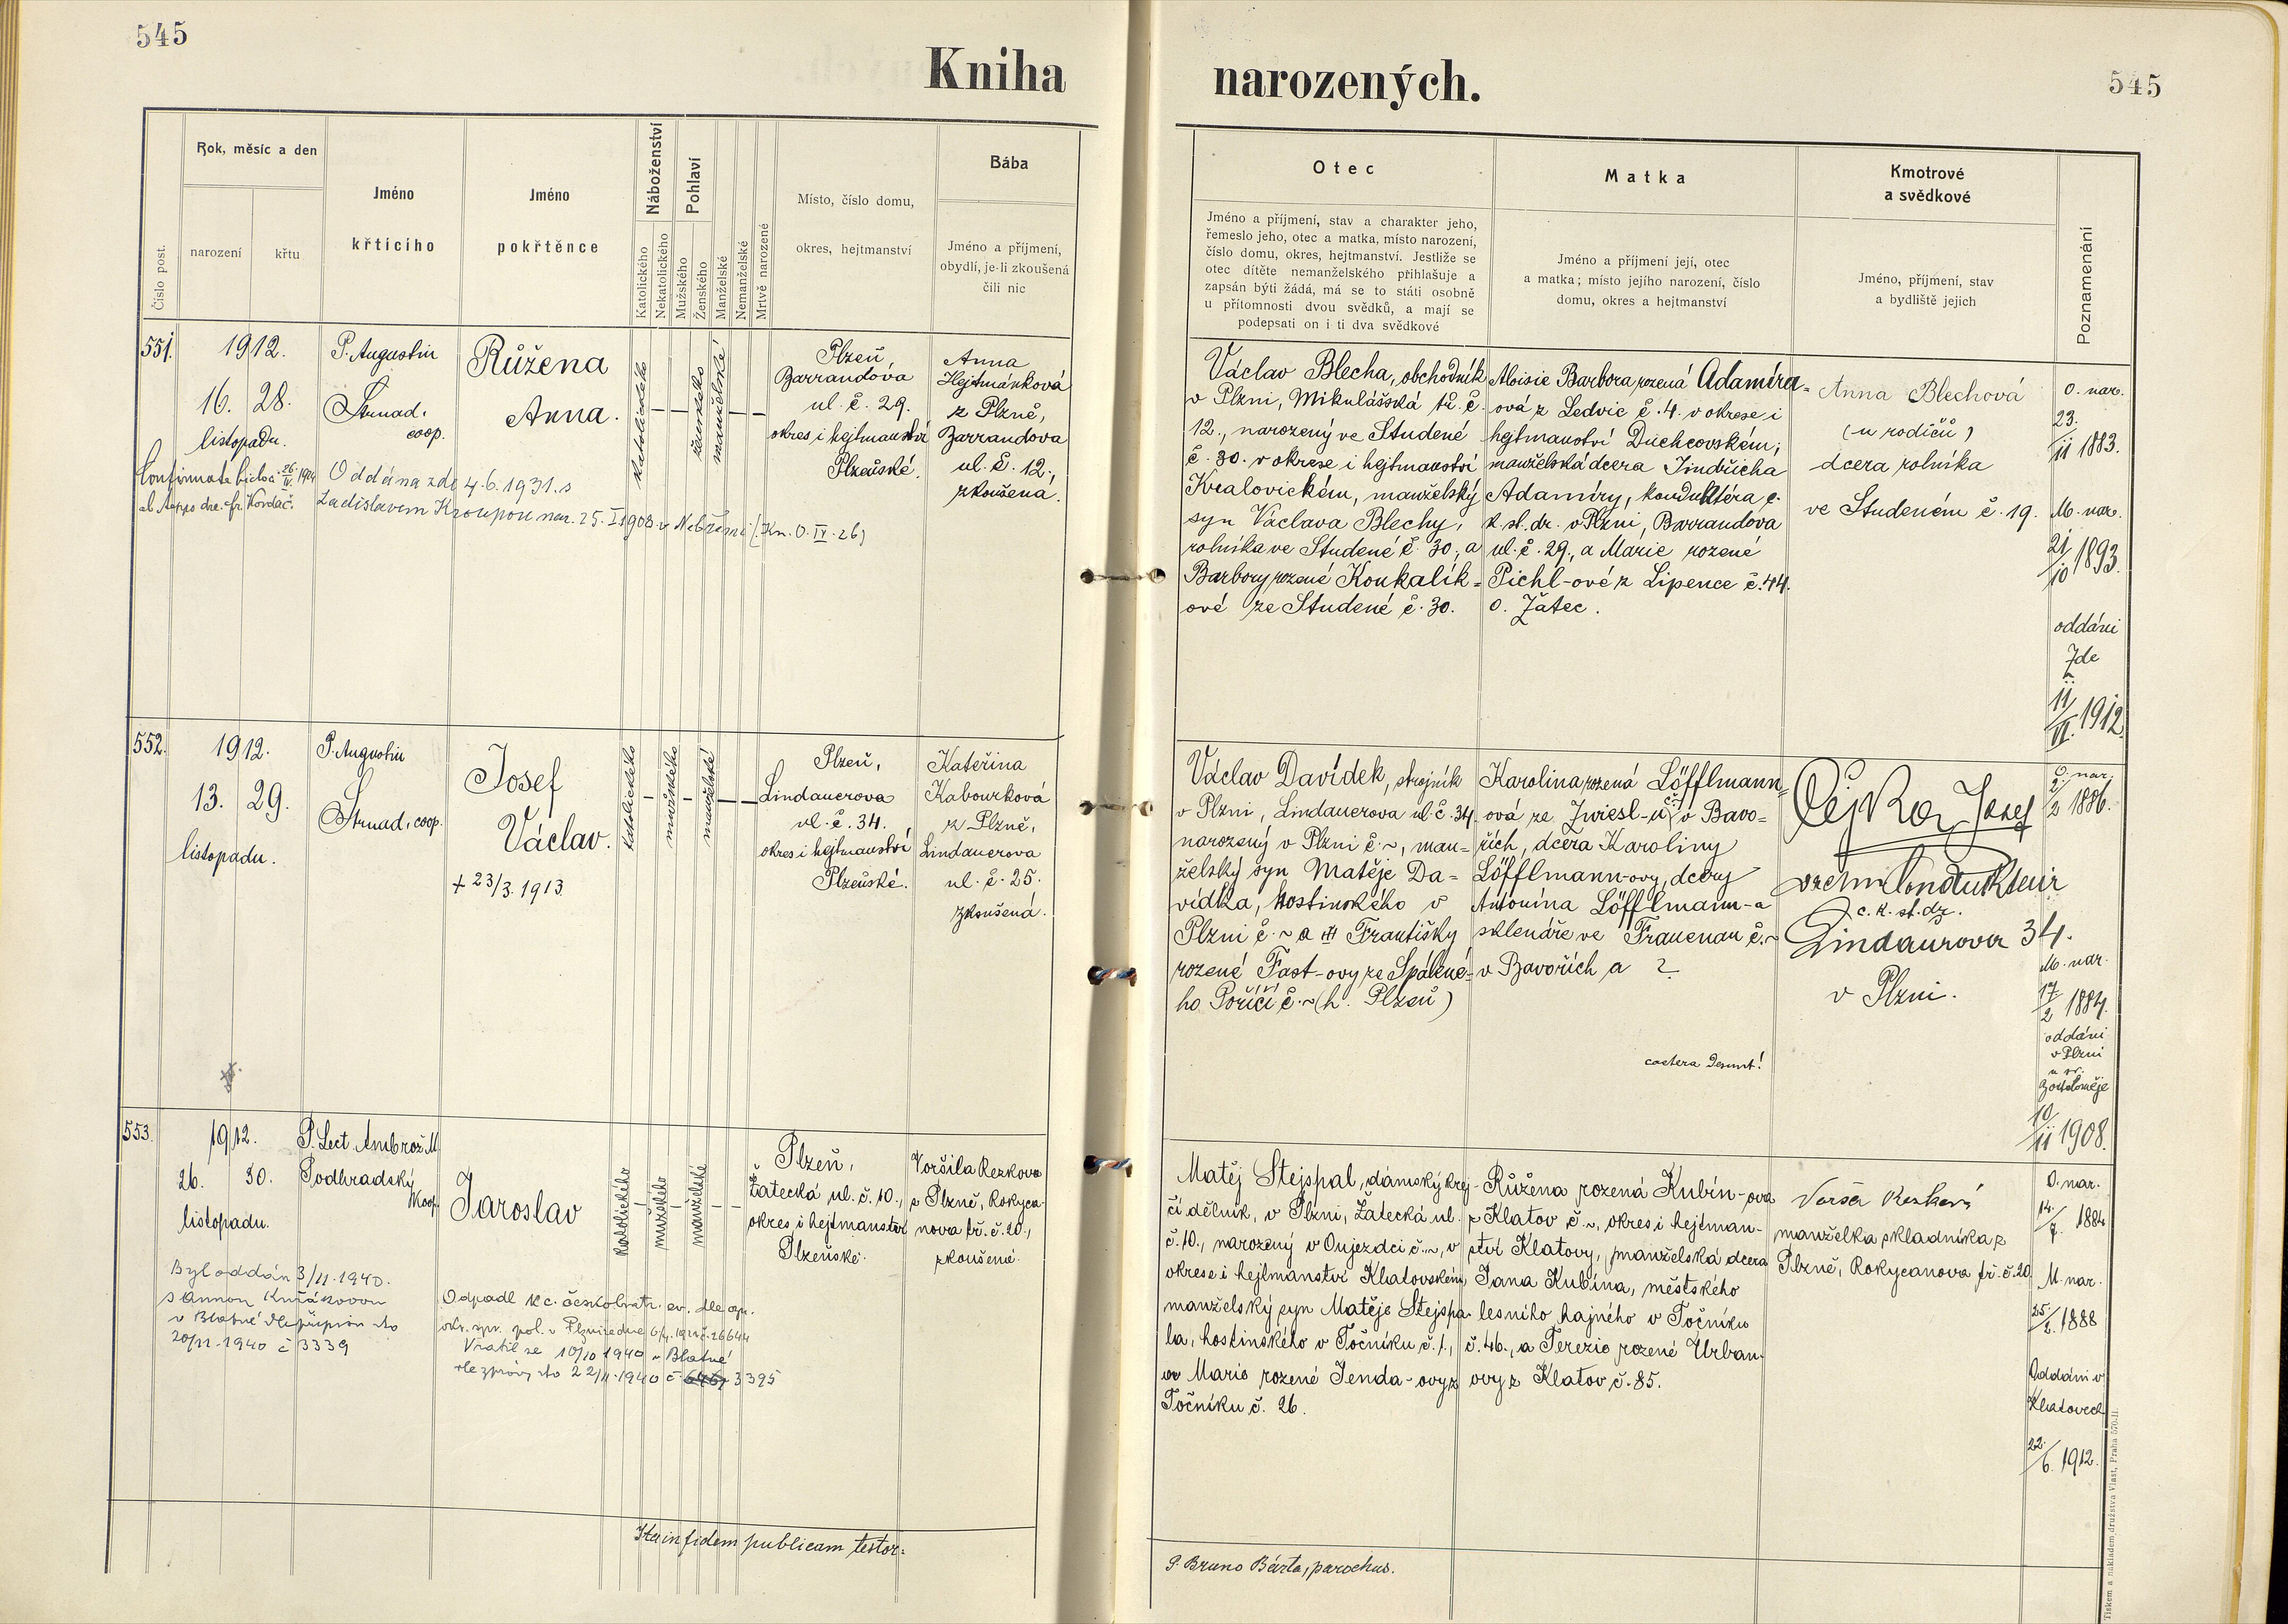 545
Kniha
narozených.
545
Číslo post.
Rok, měsíc a den
narození
křtu
Jméno
křticího
Jméno
pokřtěnce
Náboženství
Katolického
Nekatolického
Pohlaví
Mužského
Ženského
Manželské
Nemanželské
Mrtvě narozené
Místo, číslo domu,
okres, hejtmanství
Bába
Jméno a příjmení,
obydlí, je-li zkoušená
čili nic
Otec
Jméno a příjmení, stav a charakter jeho,
řemeslo jeho, otec a matka, místo narození,
číslo domu, okres, hejtmanství. Jestliže se
otec dítěte nemanželského přihlašuje a
zapsán býti žádá, má se to státi osobně
u přítomnosti dvou svědků, a mají se
podepsati on i ti dva svědkové
Matka
Jméno a příjmení její, otec
a matka; místo jejího narození, číslo
domu, okres a hejtmanství
Kmotrové
a svědkové
Jméno, příjmení, stav
a bydliště jejich
Poznamenání
551.
1912.
16. 28.
listopadu.
P. Augustin
Strnad,
coop.
Růžena
Anna.
katolického
ženského
manželské
Plzeň,
Barrandova
ul. č. 29.
okres i hejtmanství
Plzeňské.
Anna
Hejtmánková
z Plzně,
Barrandova
ul. č. 12.,
zkoušená.
Oddána zde 4.6.1931. s
Ladislavem Kroupou nar. 25. I 1908 v (Kn. O. IV. 26)
Václav Blecha, obchodník
v Plzni, Mikulášská tř. č.
12., narozený ve Studené
č. 30. v okrese i hejtmanství
Kralovickém, manželský
syn Václava Blechy,
rolníka ve Studené č. 30., a
Barbory rozené Koukalík-
ové ze Studené č. 30.
Aloisie Barbora rozená Adamíra-
ová z Ledvic č. 4. v okrese i
hejtmanství Duchcovském;
manželská dcera Jindřicha
Adamíry, konduktéra c.
k. st. dr. v Plzni, Barrandova
ul. č. 29., a Marie rozené
Pichl-ové z Lipence č. 44.
o. Žatec.
Anna Blechová
(u rodičů)
dcera rolníka
ve Studeném č. 19.
O. nar.
23.
11 1883.
M. nar.
21/10 1893.
oddáni
zde
11/II. 1912.
552.
1912.
13. 29.
listopadu.
P. Augustin
Strnad, coop.
Josef
Václav.
+ 23/3. 1913
katolického
mužského
manželské
Plzeň,
Lindauerova
ul. č. 34.
okres i hejtmanství
Plzeňské.
Kateřina
Kabourková
z Plzně,
Lindauerova
ul. č. 25.
zkoušená.
Václav Davídek, strojník
v Plzni, Lindauerova ul. č. 34.
narozený v Plzni č. ~, man-
želský syn Matěje Da-
vídka, hostinského v
Plzni č. ~ a Františky
rozené Fast-ovy ze Spálené-
ho Poříčí č. ~ (h. Plzeň)
Karolina rozená Löfflmann-
ová ze Zwiesl-u v Bavo-
řích, dcera Karoliny
Löfflmann-ovy, dcery
Antonína Löfflmann-a
sklenáře ve Frauenau č. ~
v Bavořích a ?
caetera desunt!
Čejka Josef
vrchní kondukteur
c. k. st. dr.
Lindaurova 34.
v Plzni.
O. nar.
2/2 1886.
M. nar.
17/2 1884.
oddáni
v Plzni
u sv.
Bartoloměje
10/11 1908.
553.
1912.
26. 30.
listopadu.
P. Lect. Ambrož M.
Podhradský
koop.
Jaroslav
katolického
mužského
manželské
Plzeň,
Žatecká ul. č. 10.,
okres i hejtmanství
Plzeňské.
Voršila Rezkova
z Plzně, Rokyca-
nova tř. č. 20.,
zkoušená.
Byl oddán 3/11. 1940.
s Annou Kuřákovou
v Blatné dle přípisu zto
20/11. 1940 č 3339
Odpadl k c. českobratr. ev. dle opr.
Vrátil se 10/10 1940 v Blatné
dle zprávy zto 22/11. 1940 č. 3395
Matěj Stejspal, dámský krej-
čí dělník, v Plzni, Žatecká ul.
č. 10., narozený v Oujezdci č. ~, v
okrese i hejtmanství Klatovském,
manželský syn Matěje Stejspa-
la, hostinského v Točníku č. 1.,
a Marie rozené Jenda-ovy z
Točníku č. 26.
Růžena rozená Kubín-ova
z Klatov č. ~, okres i hejtman-
ství Klatovy, manželská dcera
Jana Kubína, městského
lesního hajného v Točníku
č. 46., a Terezie rozené Urban-
ovy z Klatov č. 85.
manželka skladníka z
Plzně, Rokycanova tř. č. 20
O. nar.
14./7. 1884
M. nar.
25./2. 1888
Oddáni v
Klatovech
22./6. 1912.
Ita in fidem publicam testor:
P. Bruno Bárta, parochus.
Tiskem a nákladem družstva Vlast, Praha 570-II.